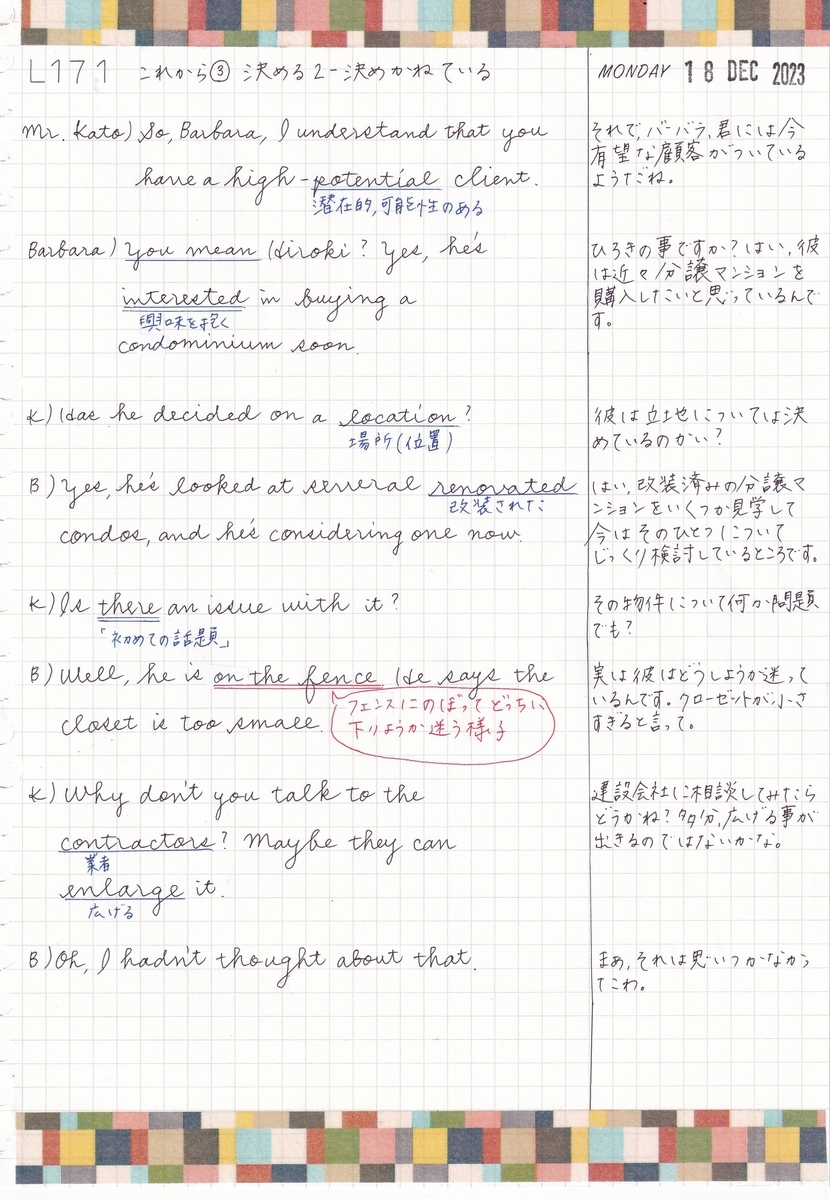 L171 これから③ 決める2-決めかねている
MONDAY 18 DEC 2023
Mr. Kato) So, Barbara, I understand that you
have a high-potential client.
潜在的,可能性のある
それで,バーバラ,君には今
有望な顧客がついている
ようだね。
Barbara) You mean Hiroki? Yes, he's
interested in buying a
興味を抱く
condominium soon.
ひろきの事ですか?はい,彼
は近々分譲マンションを
購入したいと思っているんで
す。
K) Has he decided on a location?
場所(位置)
彼は立地については決
めているのかい?
B) Yes, he's looked at several renovated
改装された
condos, and he's considering one now.
はい,改装済みの分譲マ
ンションをいくつか見学して
今はそのひとつについて
じっくり検討しているところです。
K) Is there an issue with it?
「初めての話題」
その物件について何か問題
でも?
B) Well, he is on the fence. He says the
closet is too small.
フェンスにのぼってどっちに
下りようか迷う様子
実は彼はどうしようか迷って
いるんです。クローゼットが小さ
すぎると言って。
K) Why don't you talk to the
contractors? Maybe they can
業者
enlarge it.
広げる
建設会社に相談してみたら
どうかね?多分,広げる事が
出きるのではないかな。
B) Oh, I hadn't thought about that.
まあ,それは思いつかなかっ
たわ。